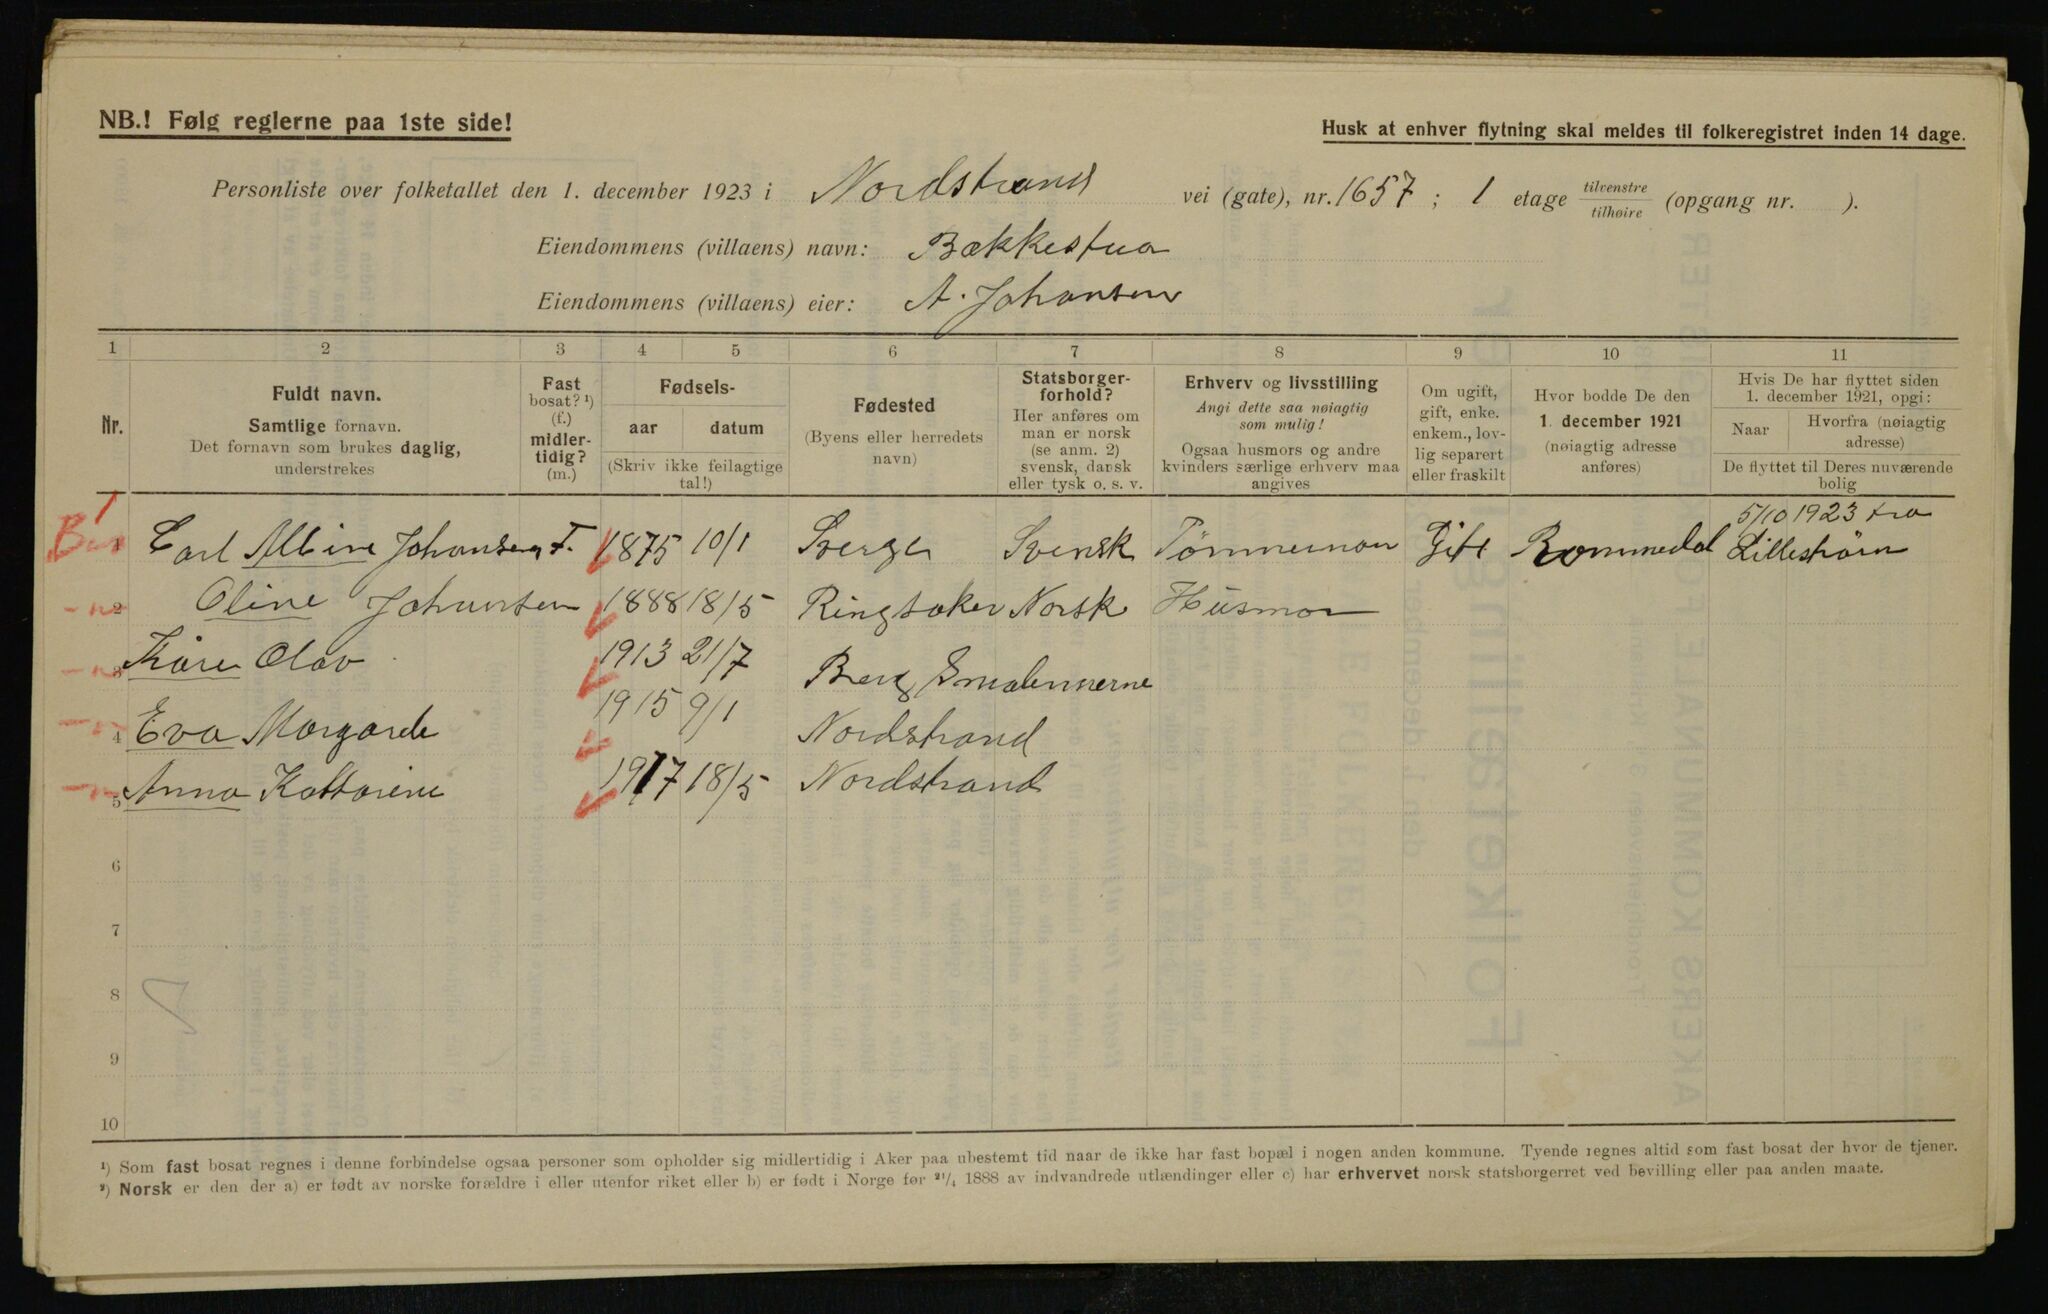 NB.! Følg reglerne paa 1ste side!
Husk at enhver flytning skal meldes til folkeregistret inden 14 dage.
Personliste over folketallet den 1. december 1923 i Nordstrand vei (gate), nr. 1657 ; 1 etage tilvenstre / tilhøire (opgang nr. ).
Eiendommens (villaens) navn: Bækkestua
Eiendommens (villaens) eier: A. Johansen
1 2 3 4 5 6 7 8 9 10 11
Nr.
Fuldt navn.
Samtlige fornavn.
Det fornavn som brukes daglig,
understrekes
Fast
bosat? ¹)
(f.)
midler-
tidig?
(m.)
Fødsels-
aar datum
(Skriv ikke feilagtige
tal!)
Fødested
(Byens eller herredets
navn)
Statsborger-
forhold?
Her anføres om
man er norsk
(se anm. 2)
svensk, dansk
eller tysk o. s. v.
Erhverv og livsstilling
Angi dette saa nøiagtig
som mulig!
Ogsaa husmors og andre
kvinders særlige erhverv maa
angives
Om ugift,
gift, enke.
enkem., lov-
lig separert
eller fraskilt
Hvor bodde De den
1. december 1921
(nøiagtig adresse
anføres)
Hvis De har flyttet siden
1. december 1921, opgi:
Naar Hvorfra (nøiagtig
adresse)
De flyttet til Deres nuværende
bolig
5/10 1923 fra
1 Carl Albin Johansen F. 1875 10/1 Sverge Svensk Tømmerman Gift Rommedal Lillestrøm
2 Oline Johansen 1888 18/5 Ringsaker Norsk Husmor
3 Kåre Olav 1913 21/7 Berg Smalennerne
4 Eva Margarde 1915 9/1 Nordstrand
5 Anna Kattarine 1917 18/5 Nordstrand
6
7
8
9
10
¹) Som fast bosat regnes i denne forbindelse ogsaa personer som opholder sig midlertidig i Aker paa ubestemt tid naar de ikke har fast bopæl i nogen anden kommune. Tyende regnes altid som fast bosat der hvor de tjener.
²) Norsk er den der a) er født av norske forældre i eller utenfor riket eller b) er født i Norge før ²¹/₄ 1888 av indvandrede utlændinger eller c) har erhvervet norsk statsborgerret ved bevilling eller paa anden maate.